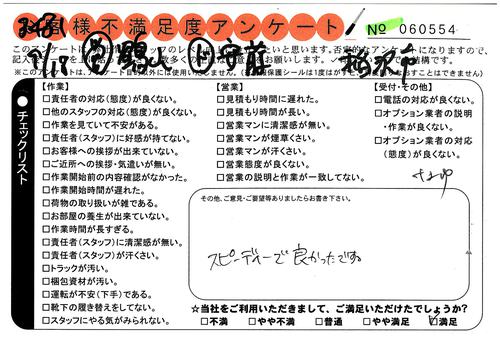 様不満足度アンケート
No 060554
このアンケートは
否定的なアンケートになりますので、
【作業】
□責任者の対応(態度)が良くない。
□他のスタッフの対応(態度)が良くない。
□作業を見ていて不安がある。
□責任者(スタッフ)に好感が持てない。
□お客様への挨拶が出来ていない。
□ご近所への挨拶・気遣いが無い。
□作業開始前の内容確認がなかった。
□作業開始時間が遅れた。
□荷物の取り扱いが雑である。
□お部屋の養生が出来ていない。
□作業時間が長すぎる。
□責任者(スタッフ)に清潔感が無い。
□責任者(スタッフ)が汗くさい。
□トラックが汚い。
□梱包資材が汚い。
□運転が不安(下手)である。
□靴下の履き替えをしてない。
□スタッフにやる気がみられない。
【営業】
□見積もり時間に遅れた。
□見積もり時間が長い。
□営業マンに清潔感が無い。
□営業マンが煙草くさい。
□営業マンが汗くさい。
□営業態度が良くない。
□営業の説明と作業が一致してない。
【受付・その他】
□電話の対応が良くない。
□オプション業者の説明
・作業が良くない。
□オプション業者の対応
(態度)が良くない。
チェックリスト
その他、ご意見・ご要望等ありましたらお書き下さい。
スピーディーで良かったです
☆当社をご利用いただきまして、ご満足いただけたでしょうか?
□不満 □やや不満 □普通 □やや満足 □満足